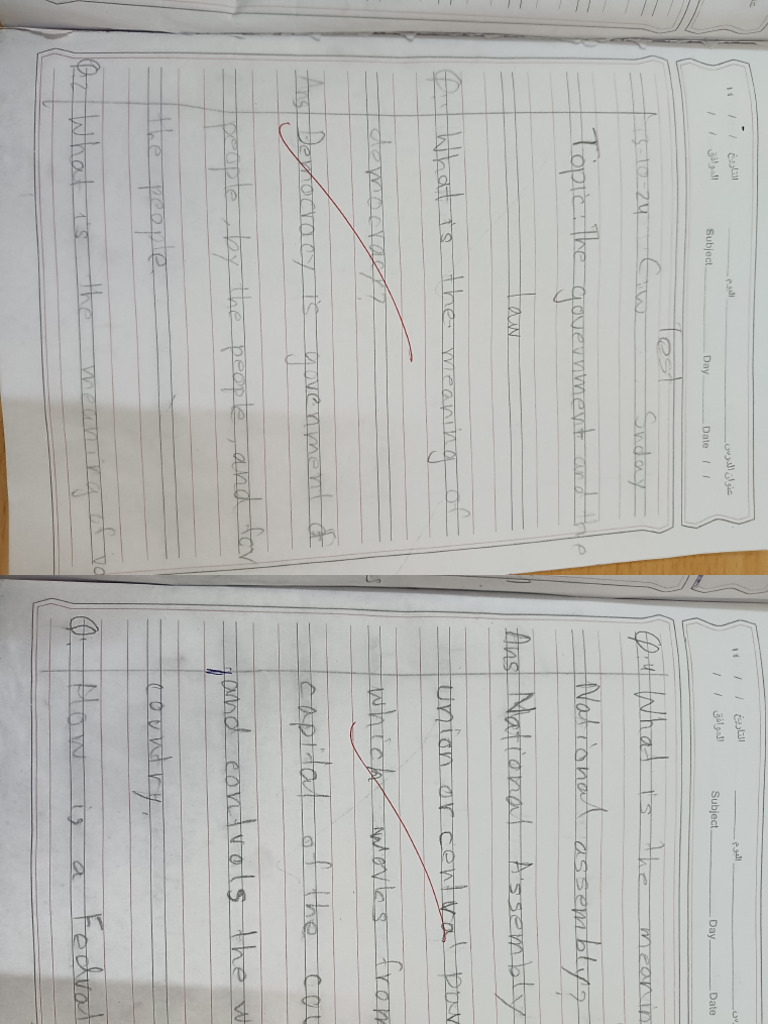 التاريخ / / ١٤ اليوم عنوان الدرس
الموافق / / Subject Day Date / /
Test
15-10-24 C.W Snday
Topic: The government and the
law
Q.1 What is the meaning of
democracy?
Ans Democracy is government of
people, by the people, and for
the people
Q2 What is the meaning of vo
التاريخ / / ١٤ اليوم
الموافق / / Subject Day Date
Q.4 What is the meanin
National assembly?
Ans National Assembly
union or central
which works from
capital of the cou
and controls the w
country.
Q. How is a Fedral